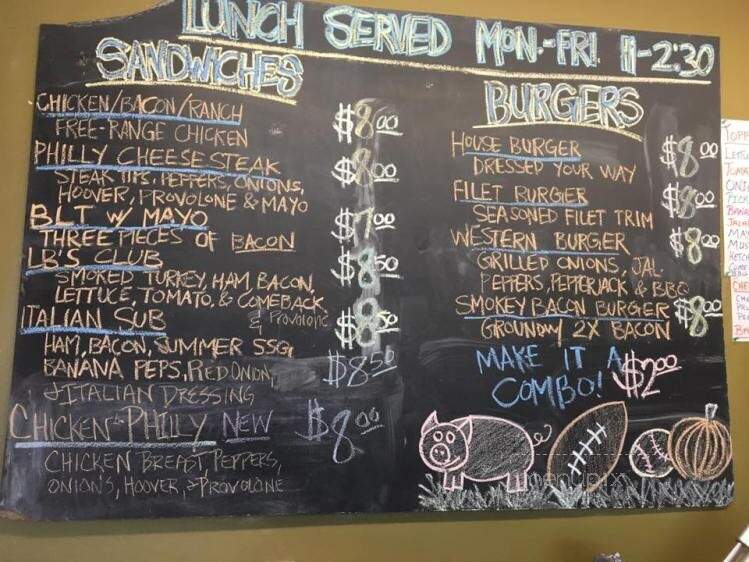 LUNCH SERVED MON.-FRI 11-2:30
SANDWICHES
CHICKEN/BACON/RANCH $8.00
FREE-RANGE CHICKEN
PHILLY CHEESE STEAK $8.00
STEAK TIPS, PEPPERS, ONIONS,
HOOVER, PROVOLONE & MAYO
BLT W/ MAYO $7.00
THREE PIECES OF BACON
LB'S CLUB $8.50
SMOKED TURKEY, HAM, BACON,
LETTUCE, TOMATO, & COMEBACK
& PROVOLONE
ITALIAN SUB $8.50
HAM, BACON, SUMMER SSG, $8.50
BANANA PEPS, RED ONION,
& ITALIAN DRESSING
CHICKEN PHILLY NEW $8.00
CHICKEN BREAST, PEPPERS,
ONIONS, HOOVER, & PROVOLONE
BURGERS
HOUSE BURGER $8.00
DRESSED YOUR WAY
FILET BURGER $8.00
SEASONED FILET TRIM
WESTERN BURGER $8.00
GRILLED ONIONS, JAL.
PEPPERS, PEPPERJACK & BBQ
SMOKEY BACON BURGER $8.00
GROUND W/ 2X BACON
MAKE IT A
COMBO! $2.00
menupix
TOPP
LETTU
TOMA
ONI
PICK
BAN
JALA
MAY
MUS
KETCH
COME
CHE